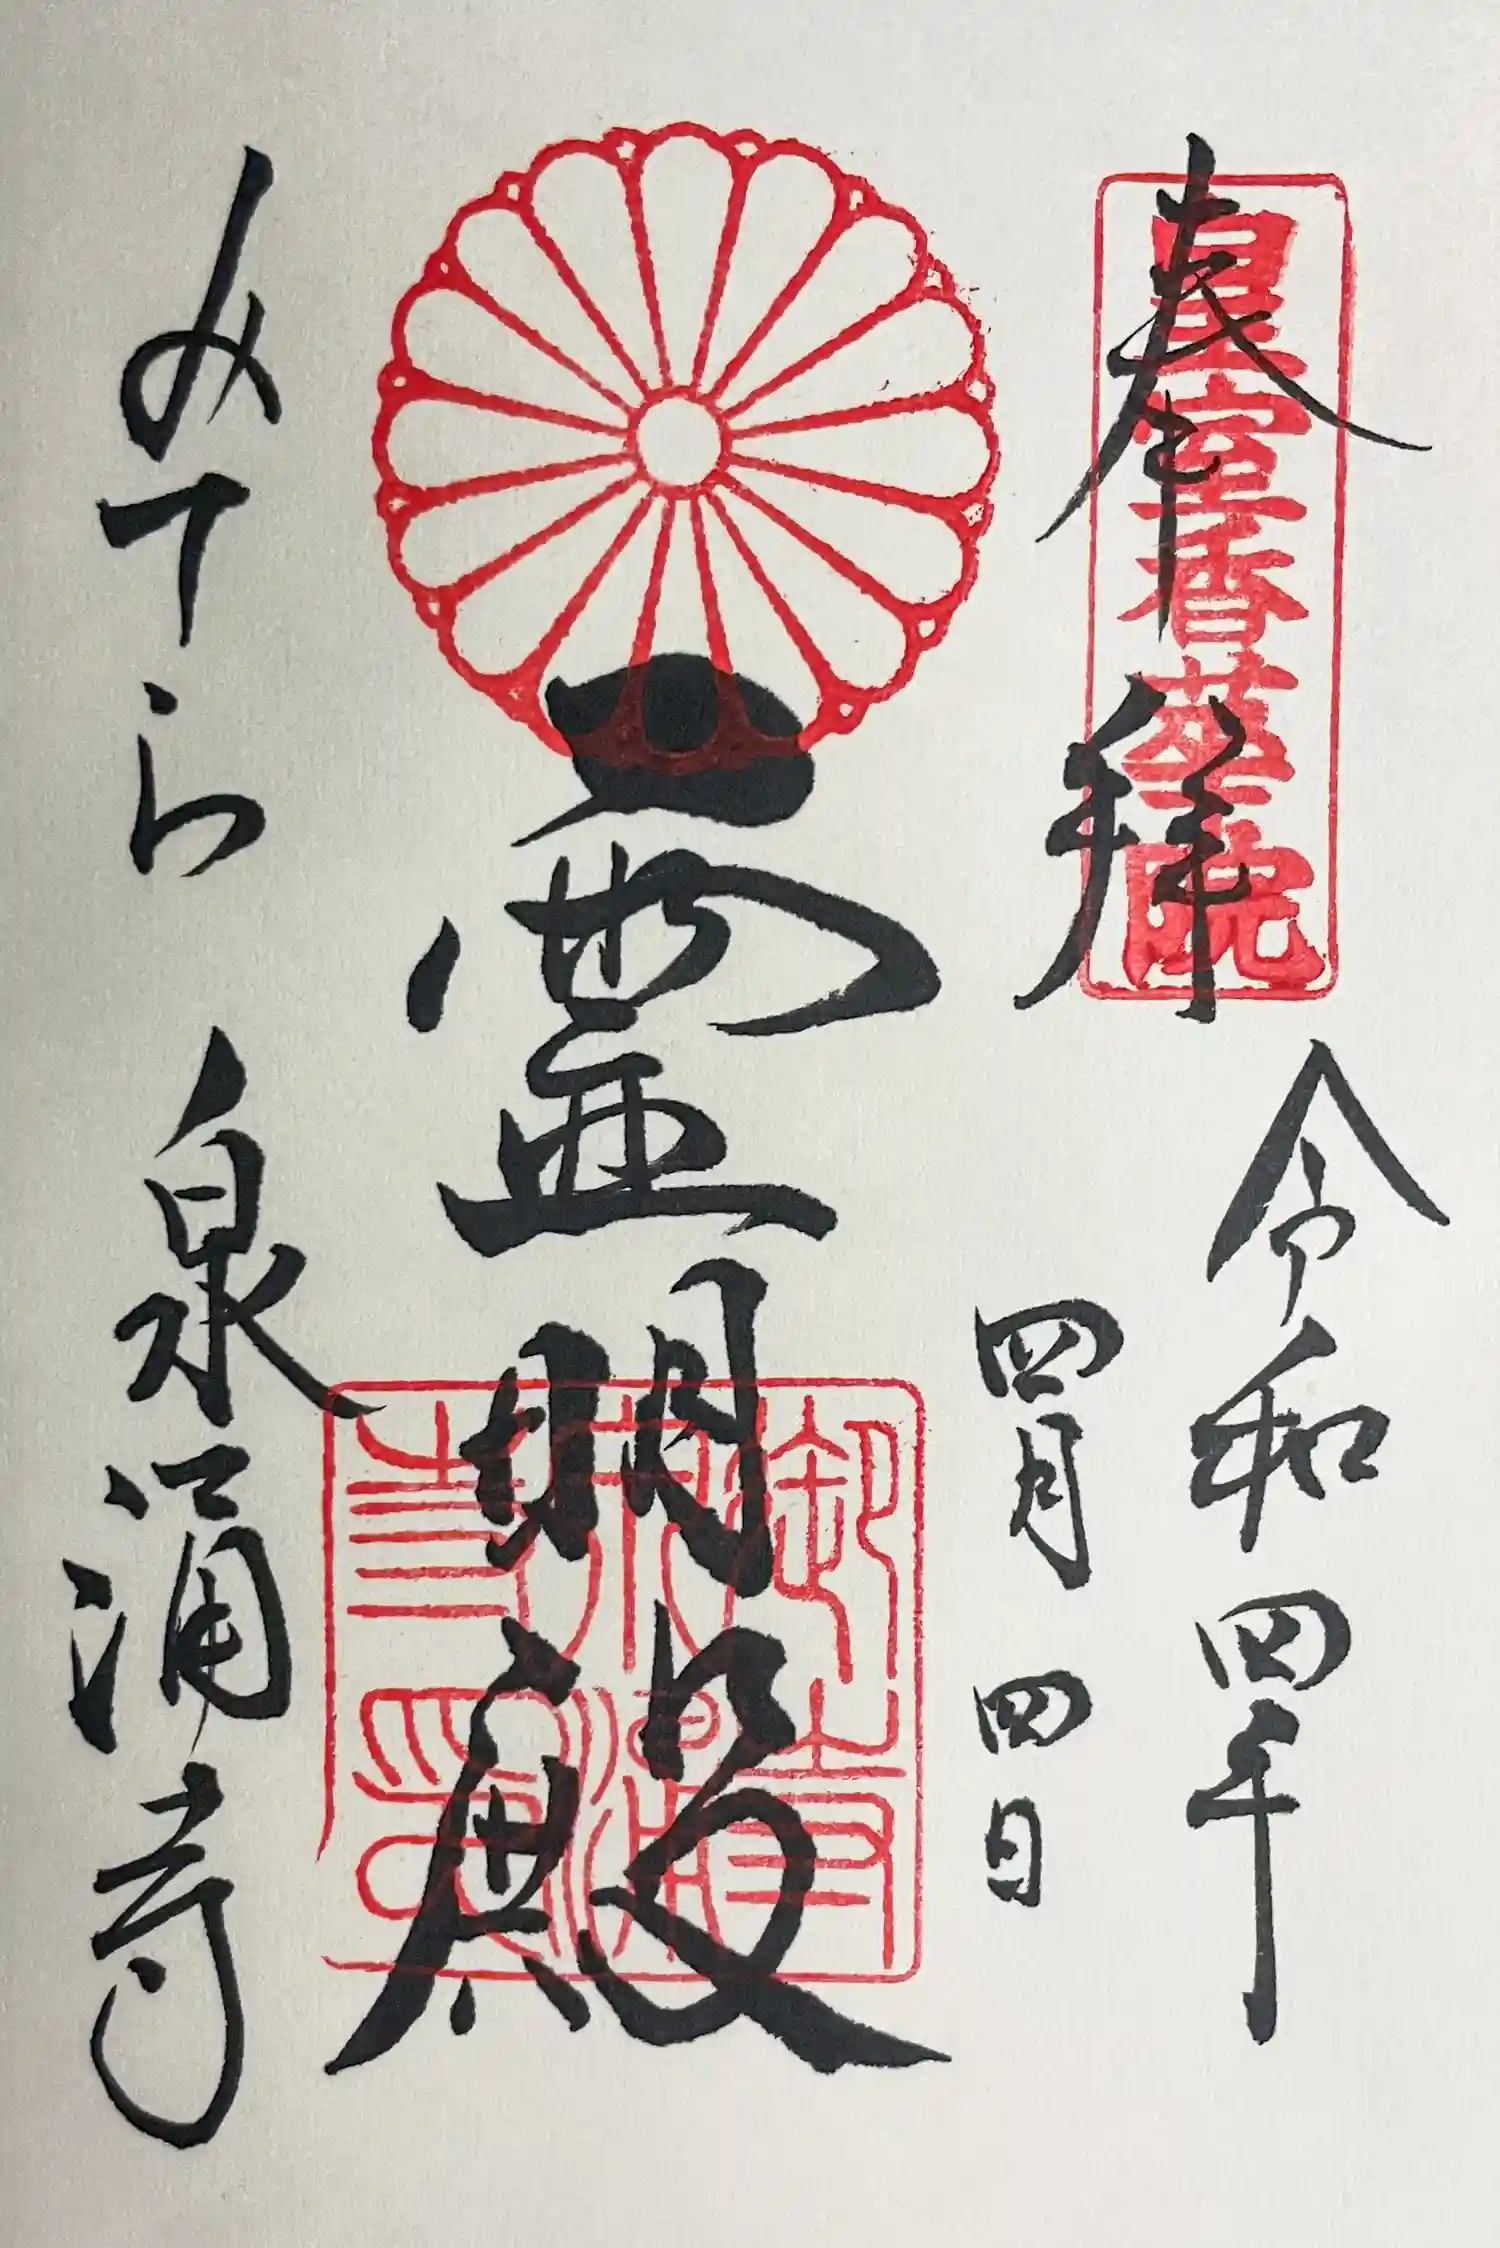 奉拝
皇室香華院
令和四年
四月四日
霊明殿
御寺泉涌寺印
みてら 泉涌寺